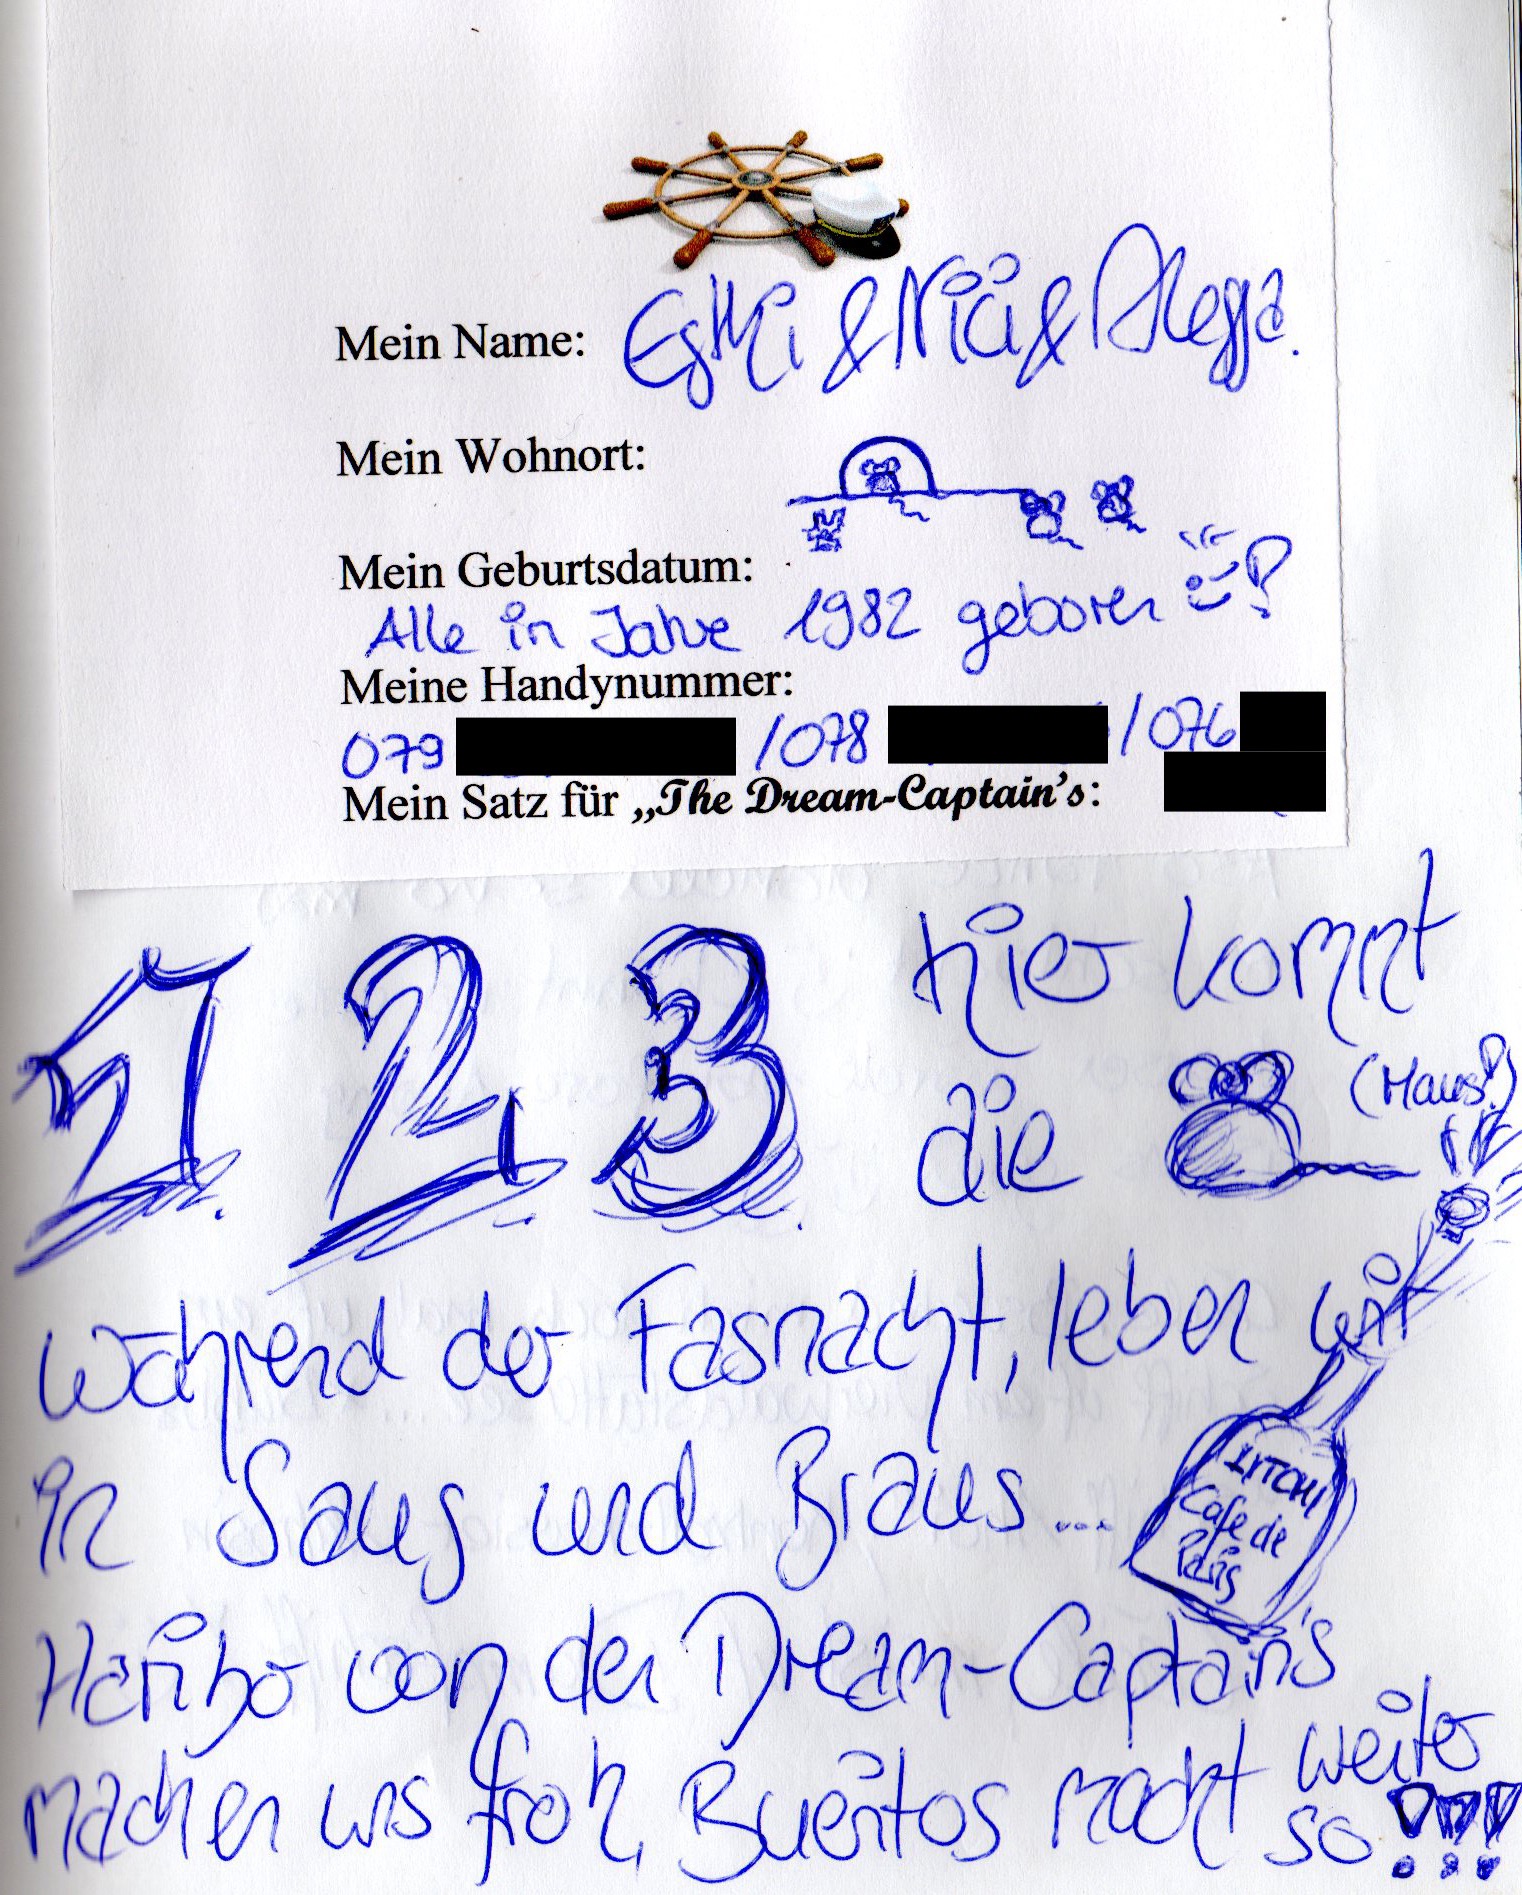 Mein Name: Esthi & Nici & Alegga.
Mein Wohnort:
Mein Geburtsdatum:
Alle in Jahre 1982 geboren !
Meine Handynummer:
079 /078 /076
Mein Satz für „The Dream-Captain's:
1. 2. 3. hier kommt
die (Maus!)
während der Fasnacht, leben wir
in Saus und Braus...
LITCHI
Cafe de
Paris
Haribo von den Dream-Captain's
machen uns froh, Bueritos macht weiter
so!!!